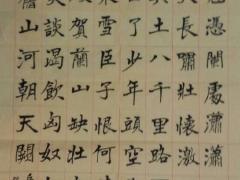 憑闌處瀟瀟
長嘯壯懷激
土八千里路
了少年頭空
雪臣子恨何
賀蘭山缺壯
談渴飲匈奴
舊山河朝天闕